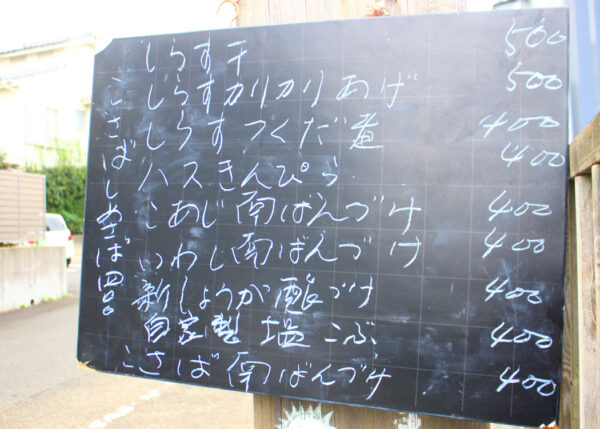 しらす干 500
しらすカリカリあげ 500
しらすつくだ煮 400
ハスきんぴら 400
こあじ南ばんづけ 400
いわし南ばんづけ 400
新しょうが酢づけ 400
自家製塩こぶ 400
こさば南ばんづけ 400
こさばしめさば四〇〇